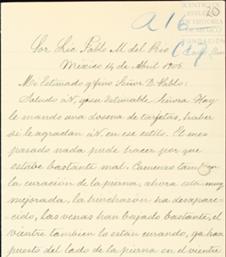 A 16
20
Sor. Lic. Pablo M. del Rio
México 14 de Abril 1906
Mi Estimado y fino Señor D. Pablo:
Saludo á V. y su estimable Señora Hoy
le mando una dosena de tarjetas, haber
si le agradan á V. en ese estilo. El mes
pasado nada pude hacer por que
estube bastante mal. Comense tambien
la curacion de la pierna, ahora esta muy
mejorada, la hinchason ha desapare-
cido, las venas han bajado bastante, el
vientre tambien lo están curando, ya han
puesto del lado de la pierna en el vientre